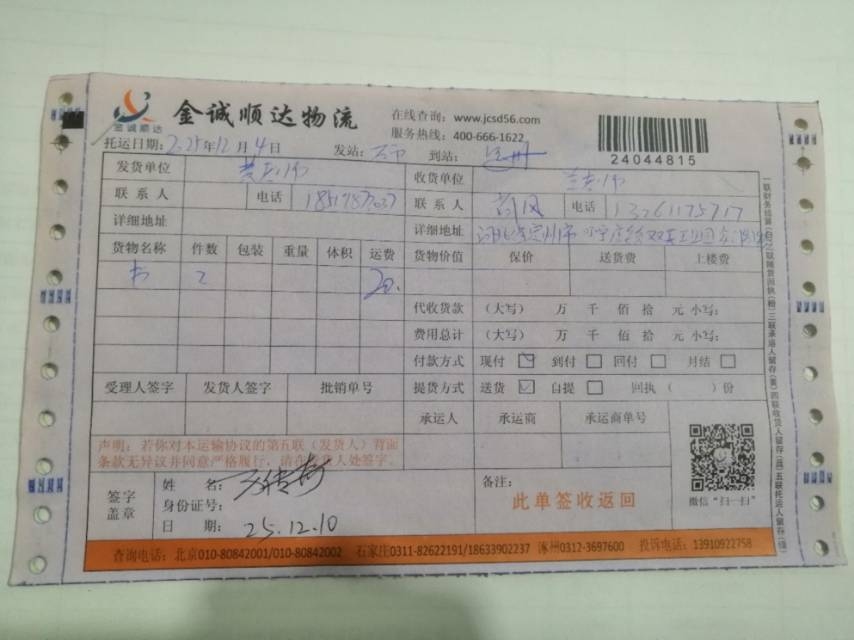 金诚顺达
金诚顺达物流
在线查询：www.jcsd56.com
服务热线：400-666-1622
24044815
托运日期：2025年12月4日 发站： 到站：
发货单位 收货单位
联系人 电话 联系人 电话 13261175717
详细地址 详细地址
货物名称 件数 包装 重量 体积 运费 货物价值 保价 送货费 上楼费
书 2 20.
代收货款 （大写） 万 千 佰 拾 元 小写：
费用总计 （大写） 万 千 佰 拾 元 小写：
付款方式 现付 到付 回付 月结
受理人签字 发货人签字 批销单号 提货方式 送货 自提 回执（ ）份
承运人 承运商 承运商单号
声明：若你对本运输协议的第五联（发货人）背面
条款无异议并同意严格履行，请在发货人处签字。
签字
盖章
姓 名：
身份证号：
日 期：25.12.10
备注：
此单签收返回
微信“扫一扫”
查询电话：北京010-80842001/010-80842002 石家庄0311-82622191/18633902237 涿州0312-3697600 投诉电话：13910922758